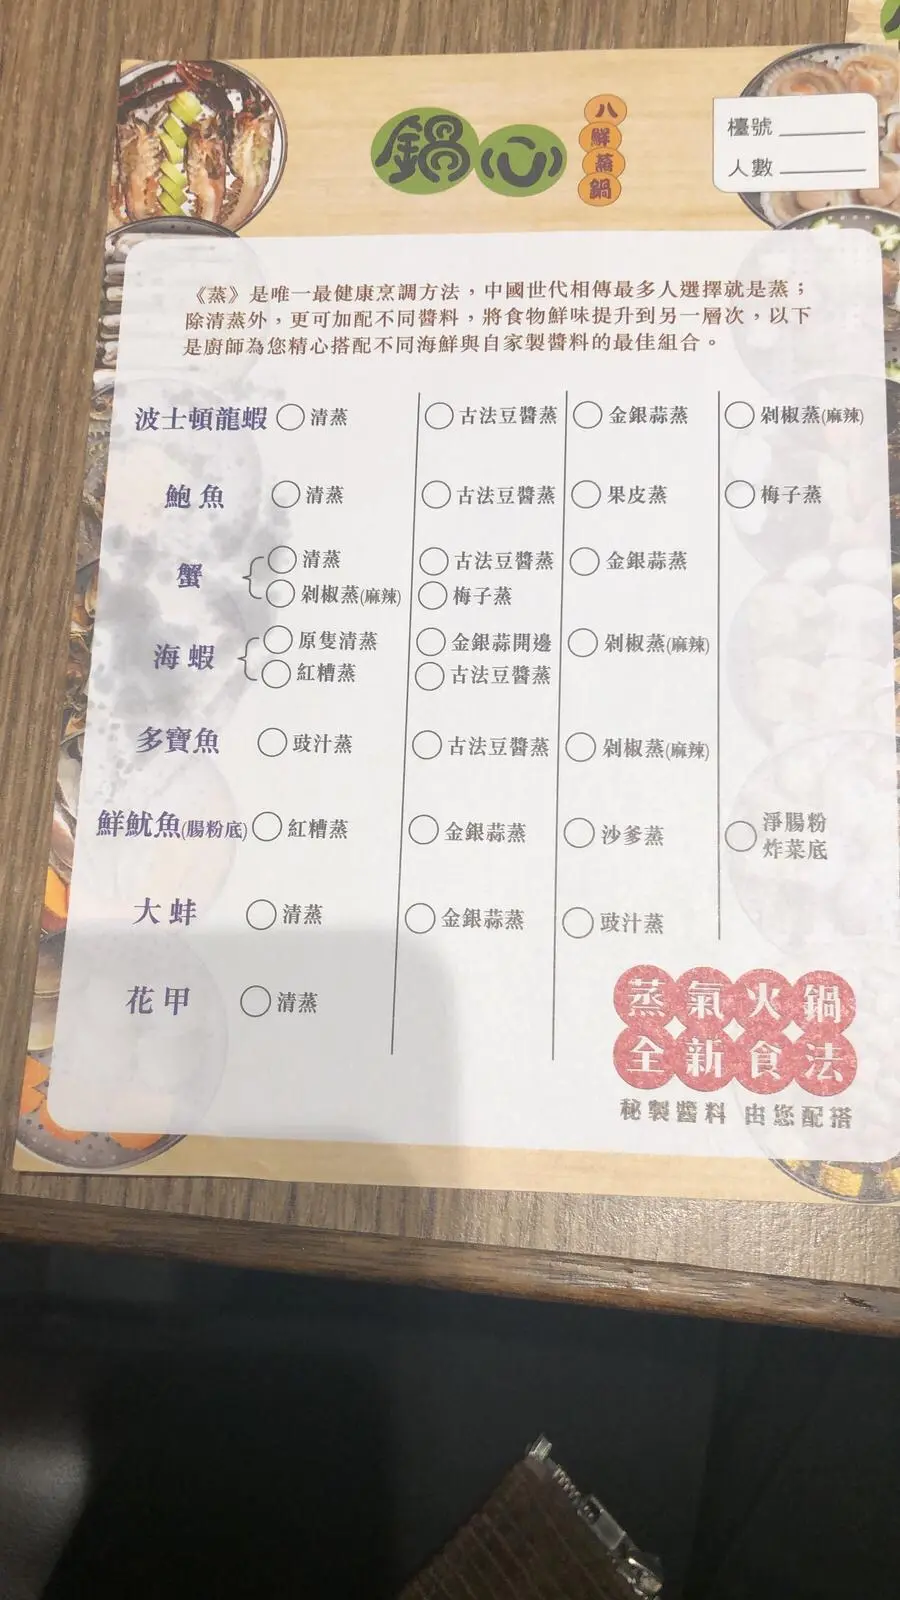 鍋心
八鮮蒸鍋
檯號
人數
《蒸》是唯一最健康烹調方法，中國世代相傳最多人選擇就是蒸；
除清蒸外，更可加配不同醬料，將食物鮮味提升到另一層次，以下
是廚師為您精心搭配不同海鮮與自家製醬料的最佳組合。
波士頓龍蝦 清蒸 古法豆醬蒸 金銀蒜蒸 剁椒蒸(麻辣)
鮑魚 清蒸 古法豆醬蒸 果皮蒸 梅子蒸
蟹 清蒸 古法豆醬蒸 金銀蒜蒸
剁椒蒸(麻辣) 梅子蒸
海蝦 原隻清蒸 金銀蒜開邊 剁椒蒸(麻辣)
紅糟蒸 古法豆醬蒸
多寶魚 豉汁蒸 古法豆醬蒸 剁椒蒸(麻辣)
鮮魷魚(腸粉底) 紅糟蒸 金銀蒜蒸 沙爹蒸 淨腸粉
炸菜底
大蚌 清蒸 金銀蒜蒸 豉汁蒸
花甲 清蒸
蒸氣火鍋
全新食法
秘製醬料 由您配搭